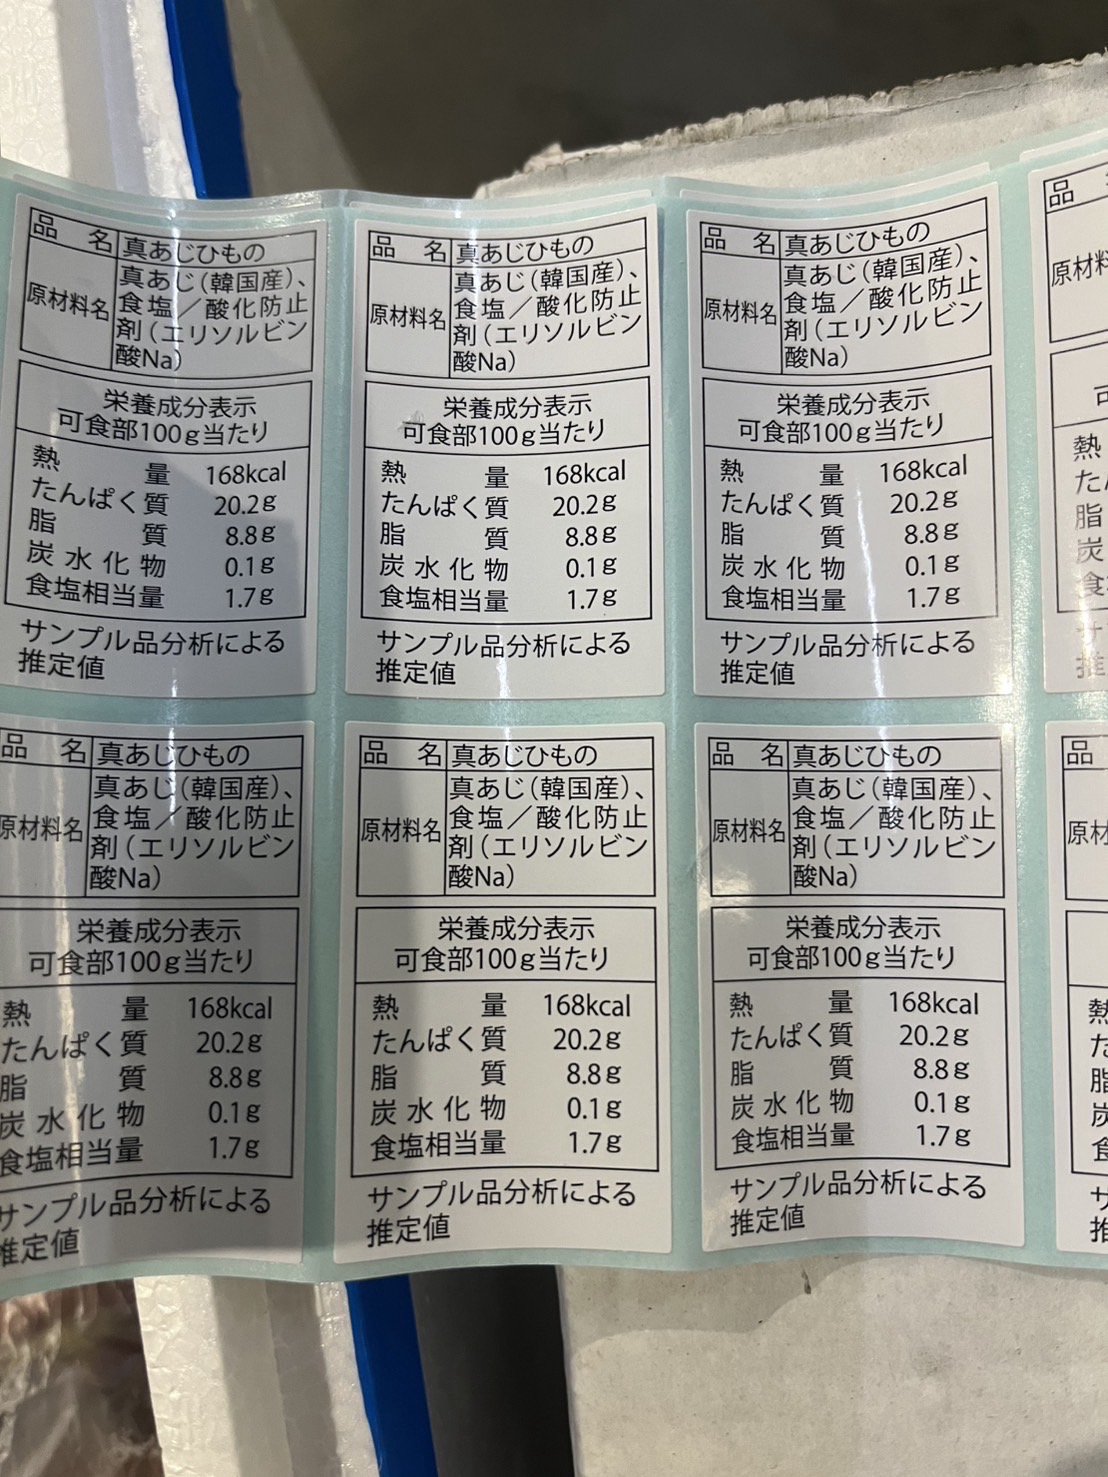 品 名 真あじひもの
原材料名 真あじ（韓国産）、
食塩／酸化防止
剤（エリソルビン
酸Na）
栄養成分表示
可食部100g当たり
熱 量 168kcal
たんぱく質 20.2g
脂 質 8.8g
炭水化物 0.1g
食塩相当量 1.7g
サンプル品分析による
推定値
品 名 真あじひもの
原材料名 真あじ（韓国産）、
食塩／酸化防止
剤（エリソルビン
酸Na）
栄養成分表示
可食部100g当たり
熱 量 168kcal
たんぱく質 20.2g
脂 質 8.8g
炭水化物 0.1g
食塩相当量 1.7g
サンプル品分析による
推定値
品 名 真あじひもの
原材料名 真あじ（韓国産）、
食塩／酸化防止
剤（エリソルビン
酸Na）
栄養成分表示
可食部100g当たり
熱 量 168kcal
たんぱく質 20.2g
脂 質 8.8g
炭水化物 0.1g
食塩相当量 1.7g
サンプル品分析による
推定値
品
原材料
熱
た
脂
炭
食
サ
推
品 名 真あじひもの
原材料名 真あじ（韓国産）、
食塩／酸化防止
剤（エリソルビン
酸Na）
栄養成分表示
可食部100g当たり
熱 量 168kcal
たんぱく質 20.2g
脂 質 8.8g
炭水化物 0.1g
食塩相当量 1.7g
サンプル品分析による
推定値
品 名 真あじひもの
原材料名 真あじ（韓国産）、
食塩／酸化防止
剤（エリソルビン
酸Na）
栄養成分表示
可食部100g当たり
熱 量 168kcal
たんぱく質 20.2g
脂 質 8.8g
炭水化物 0.1g
食塩相当量 1.7g
サンプル品分析による
推定値
品 名 真あじひもの
原材料名 真あじ（韓国産）、
食塩／酸化防止
剤（エリソルビン
酸Na）
栄養成分表示
可食部100g当たり
熱 量 168kcal
たんぱく質 20.2g
脂 質 8.8g
炭水化物 0.1g
食塩相当量 1.7g
サンプル品分析による
推定値
品
原材
熱
た
脂
炭
食
サ
推